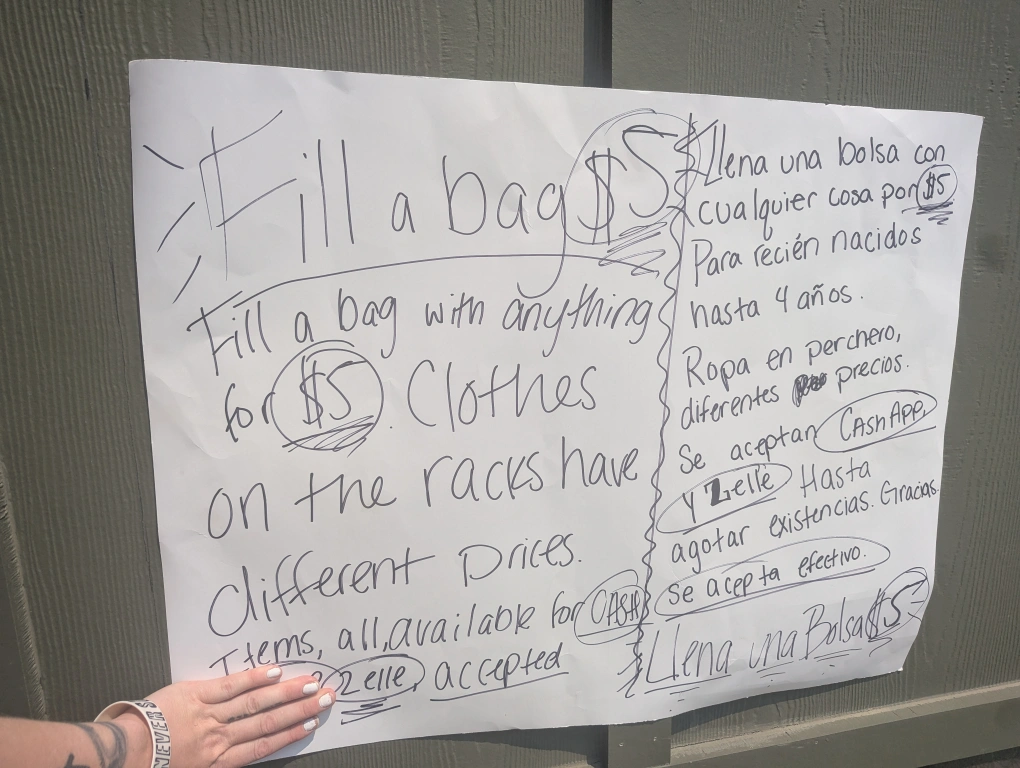 Fill a bag $5
Fill a bag with anything
for $5. Clothes
on the racks have
different prices.
Items, all, available for CASH
Zelle, accepted
Llena una bolsa con
cualquier cosa por $5
Para recién nacidos
hasta 4 años.
Ropa en perchero,
diferentes precios.
Se aceptan CASH APP,
y Zelle Hasta
agotar existencias. Gracias.
Se acepta efectivo.
Llena una Bolsa $5
NEVER